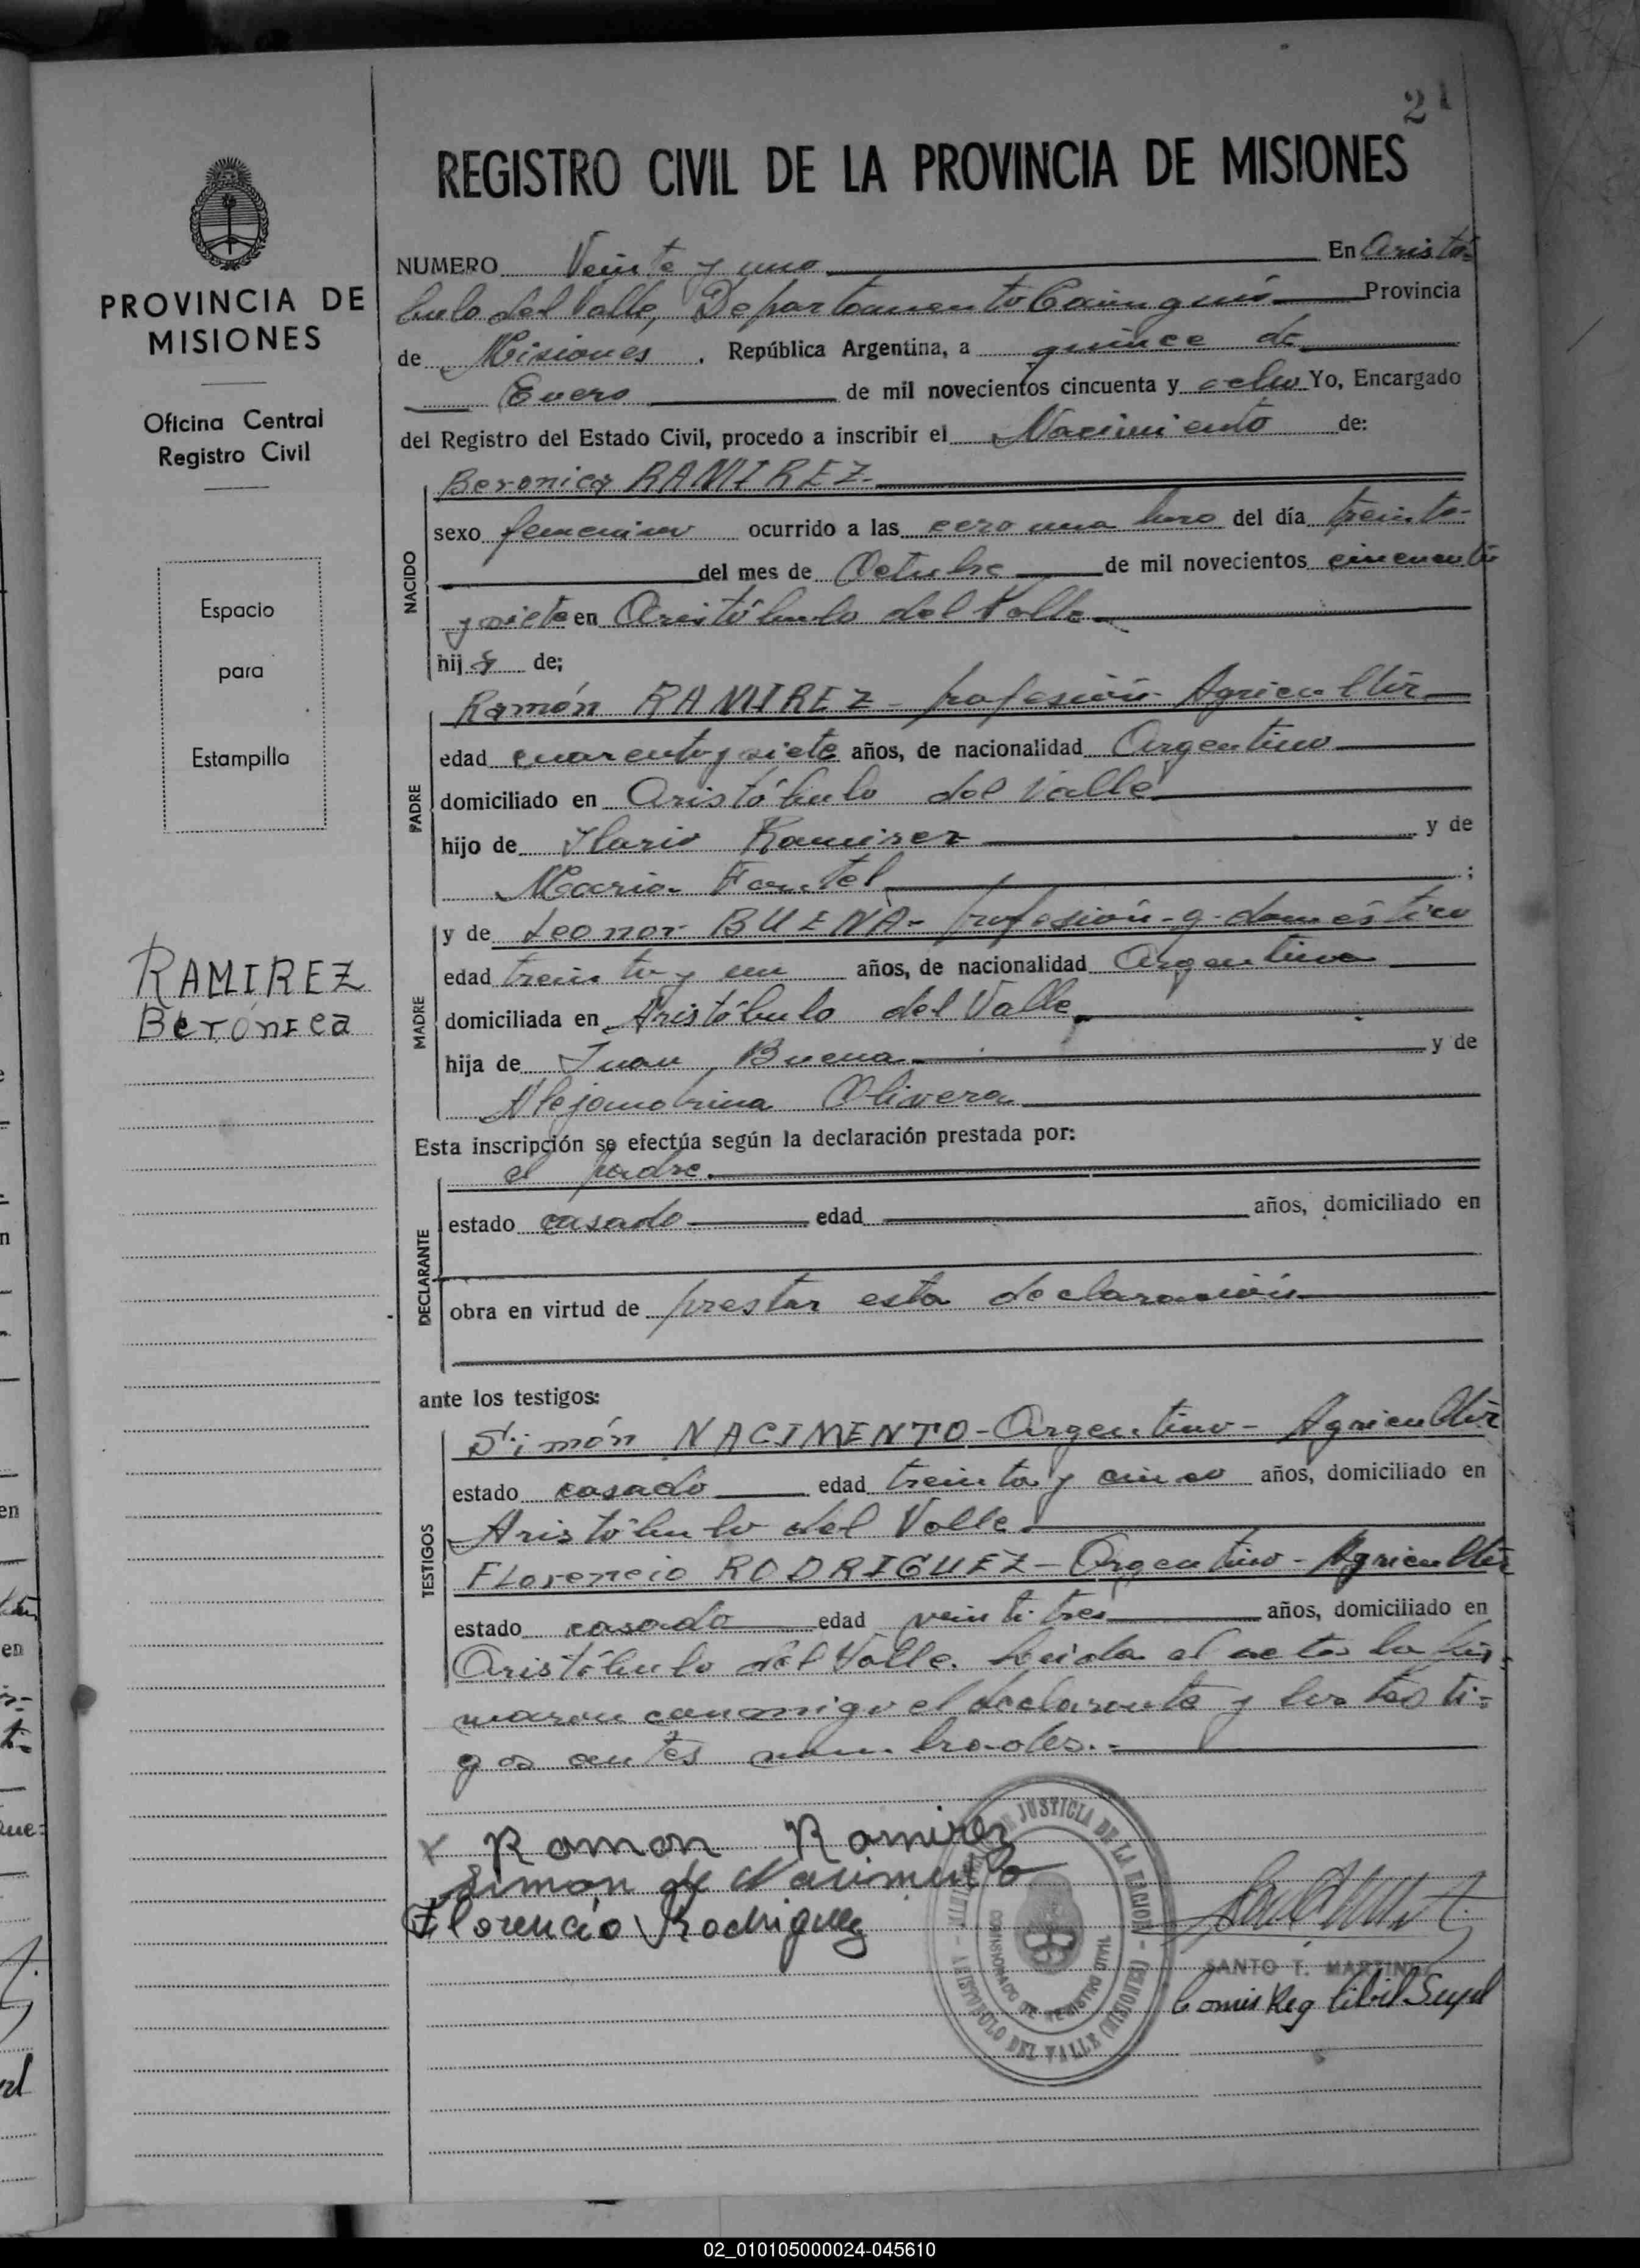 21
REGISTRO CIVIL DE LA PROVINCIA DE MISIONES
PROVINCIA DE
MISIONES
Oficina Central
Registro Civil
Espacio
para
Estampilla
RAMIREZ
Berónica
NUMERO Veinte y uno En Aristó-
bulo del Valle, Departamento Cainguás Provincia
de Misiones . República Argentina, a quince de
Enero de mil novecientos cincuenta y ocho Yo, Encargado
del Registro del Estado Civil, procedo a inscribir el Nacimiento de:
NACIDO
Beronica RAMIREZ.
sexo femenino ocurrido a las cero una hora del día treinta-
del mes de Octubre de mil novecientos cincuenta
y siete en Aristóbulo del Valle
hija de;
PADRE
Ramón RAMIREZ - profesión - Agricultor
edad cuarenta y siete años, de nacionalidad Argentino
domiciliado en Aristóbulo del Valle
hijo de Ilario Ramirez y de
Maria Fantel ;
MADRE
y de Leonor BUENA - profesión - q. doméstico
edad treinta y un años, de nacionalidad Argentina
domiciliada en Aristóbulo del Valle
hija de Juan Buena y de
Alejandrina Olivera
Esta inscripción se efectúa según la declaración prestada por:
DECLARANTE
el padre.
estado casado edad años, domiciliado en
obra en virtud de prestar esta declaración
ante los testigos:
TESTIGOS
Simón NACIMENTO - Argentino - Agricultor
estado casado edad treinta y cinco años, domiciliado en
Aristóbulo del Valle.
Florencio RODRIGUEZ - Argentino - Agricultor
estado casado edad veintitres años, domiciliado en
Aristóbulo del Valle. Leida el acta la fir-
maron conmigo el declarante y los testi-
gos antes nombrados.-
x Ramon Ramirez
Simon de Nacimento
Florencio Rodriguez
MINISTERIO DE JUSTICIA DE LA NACION
COMISIONADO DE REGISTRO CIVIL
ARISTOBULO DEL VALLE (MISIONES)
SANTO T. MARTINEZ
Comis Reg Cibil Supl
02_010105000024-045610